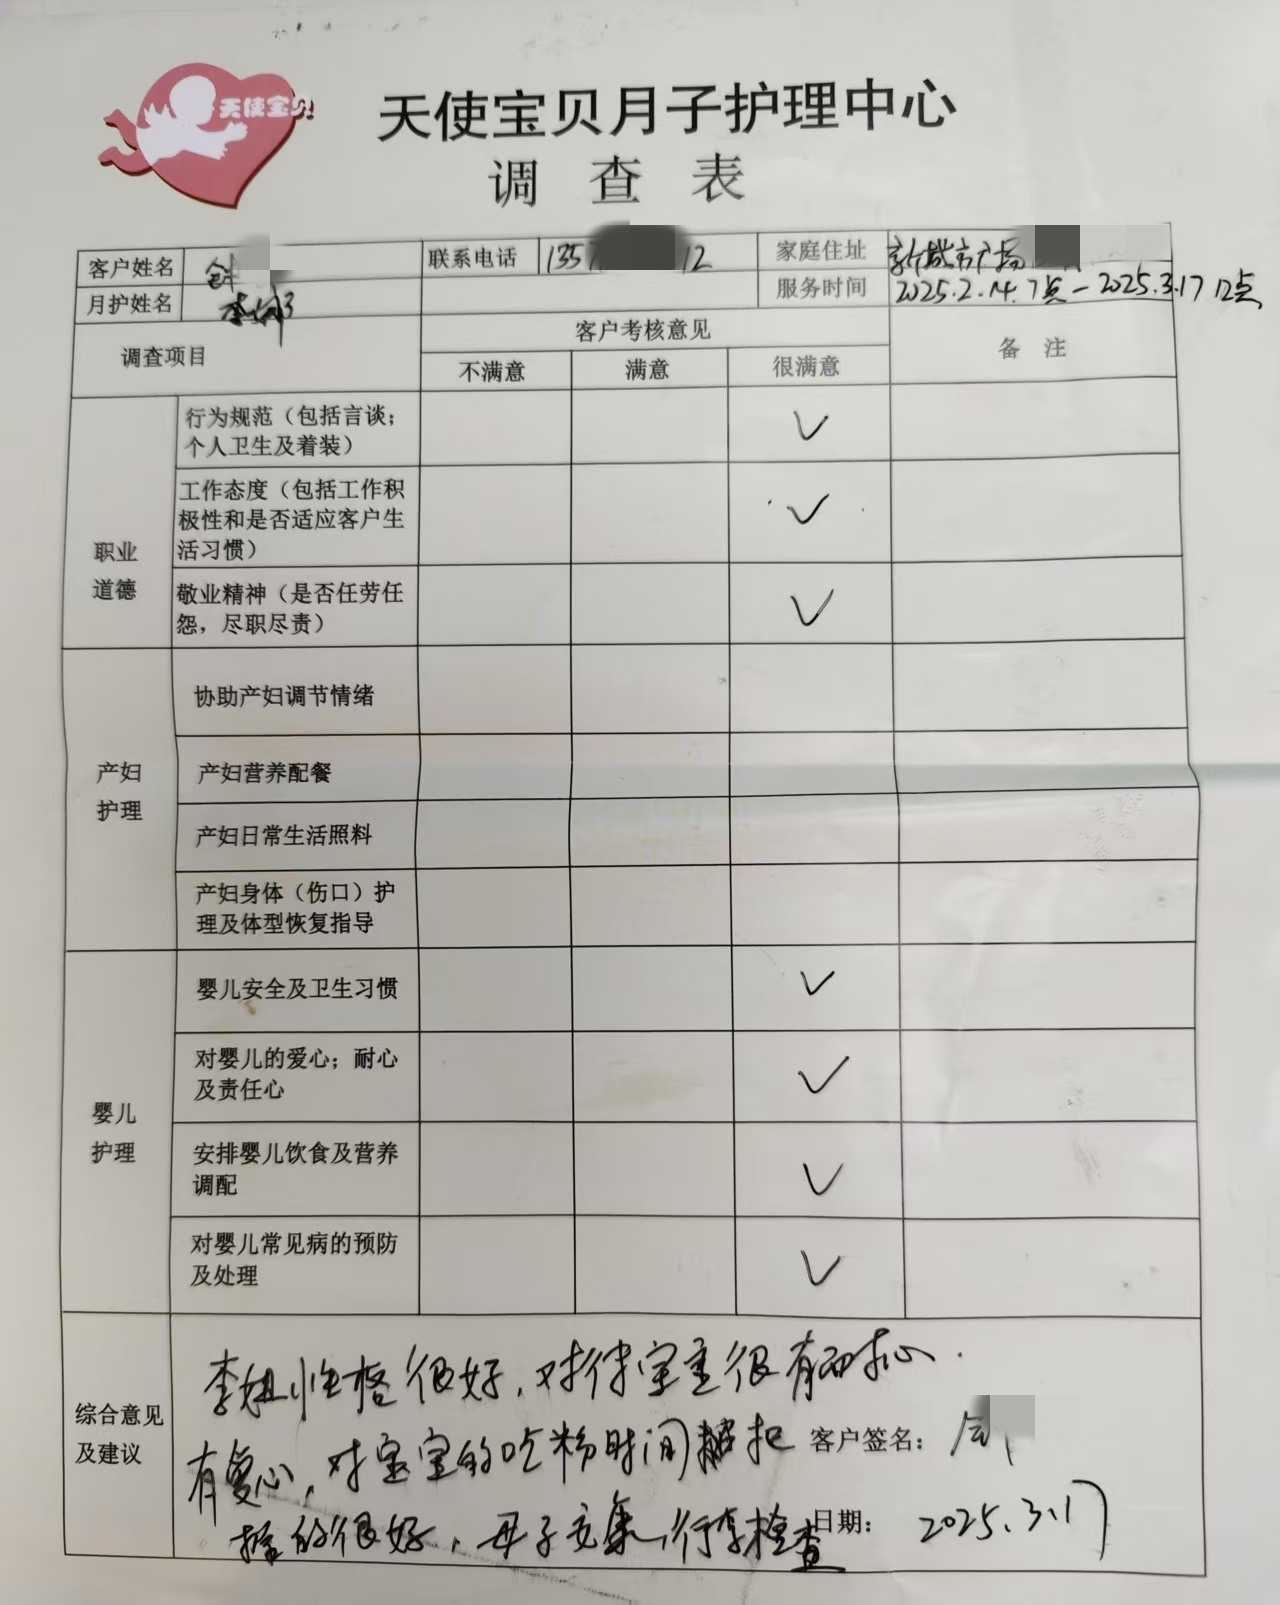 天使宝贝
天使宝贝月子护理中心
调查表
客户姓名 联系电话 1357 12 家庭住址 新城市广场
月护姓名 李 服务时间 2025.2.14.7点-2025.3.17 12点
调查项目 客户考核意见 备注
不满意 满意 很满意
职业道德
行为规范（包括言谈；
个人卫生及着装）
工作态度（包括工作积
极性和是否适应客户生
活习惯）
敬业精神（是否任劳任
怨，尽职尽责）
产妇护理
协助产妇调节情绪
产妇营养配餐
产妇日常生活照料
产妇身体（伤口）护
理及体型恢复指导
婴儿护理
婴儿安全及卫生习惯
对婴儿的爱心；耐心
及责任心
安排婴儿饮食及营养
调配
对婴儿常见病的预防
及处理
综合意见及建议
李姐性格很好，对待宝宝很有耐心.
有爱心，对宝宝的吃粉时间都把
握的很好，母子交集，行李检查
客户签名：
日期： 2025.3.17